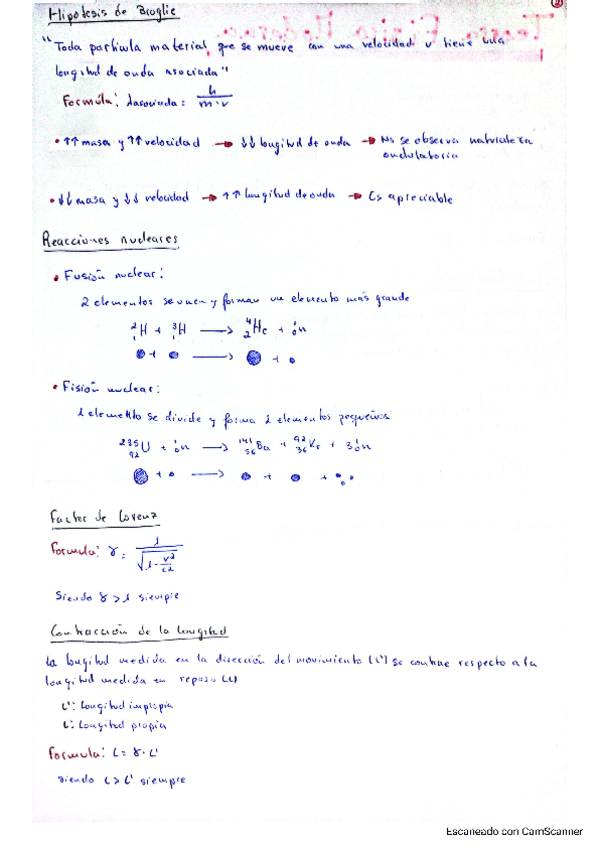 Hipótesis de Broglie
"Toda partícula material que se mueve con una velocidad v tiene una
longitud de onda asociada"
Formula: λasociada = h / m·v
• ↑↑ masa y ↑↑ velocidad → ↓↓ longitud de onda → No se observa naturaleza
ondulatoria
• ↓↓ masa y ↓↓ velocidad → ↑↑ longitud de onda → Es apreciable
Reacciones nucleares
• Fusión nuclear:
2 elementos se unen y forman un elemento más grande
²₁H + ³₁H → ⁴₂He + ¹₀n
+ → +
• Fisión nuclear:
1 elemento se divide y forma 2 elementos pequeños
²³⁵₉₂U + ¹₀n → ¹⁴¹₅₆Ba + ⁹²₃₆Kr + 3¹₀n
+ → + +
Factor de Lorenz
Formula: γ = 1 / √(1 - v²/c²)
Siendo γ > 1 siempre
Contracción de la longitud
La longitud medida en la dirección del movimiento (L') se contrae respecto a la
longitud medida en reposo (L)
L': Longitud impropia
L: Longitud propia
Formula: L = γ · L'
siendo L > L' siempre
Escaneado con CamScanner